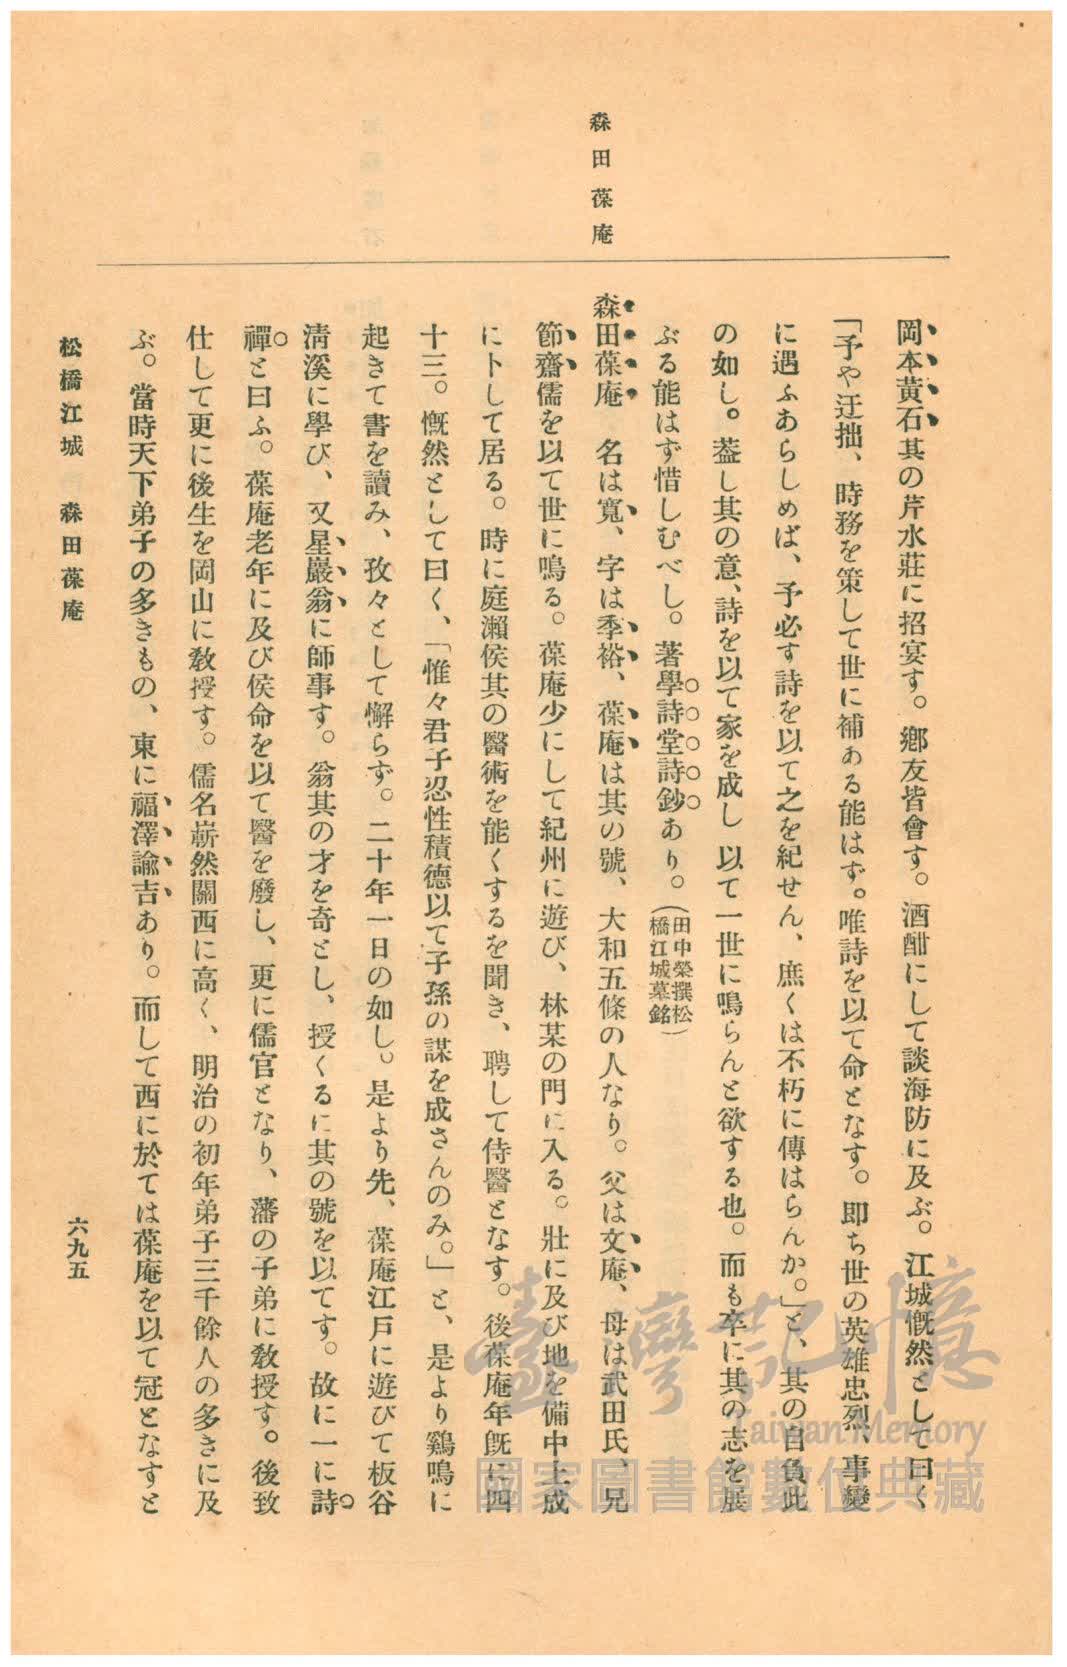 森田葆庵
岡本黃石其の芹水莊に招宴す。鄕友皆會す。酒酣にして談海防に及ぶ。江城慨然として曰く
「予や迂拙、時務を策して世に補ある能はず。唯詩を以て命となす。卽ち世の英雄忠烈、事變
に遇ふあらしめば、予必す詩を以て之を紀せん、庶くは不朽に傳はらんか。」と、其の自負此
の如し。蓋し其の意、詩を以て家を成し以て一世に鳴らんと欲する也。而も卒に其の志を展
ぶる能はず惜しむべし。著學詩堂詩鈔あり。(田中榮撰松
橋江城墓銘)
森田葆庵 名は寬、字は季裕、葆庵は其の號、大和五條の人なり。父は文庵、母は武田氏、兄
節齋儒を以て世に鳴る。葆庵少にして紀州に遊び、林某の門に入る。壯に及び地を備中上成
に卜して居る。時に庭瀨侯其の醫術を能くするを聞き、聘して侍醫となす。後葆庵年旣に四
十三。慨然として曰く、「惟々君子忍性積德以て子孫の謀を成さんのみ。」と、是より鷄鳴に
起きて書を讀み、孜々として懈らず。二十年一日の如し。是より先、葆庵江戶に遊びて板谷
淸溪に學び、又星巖翁に師事す。翁其の才を奇とし、授くるに其の號を以てす。故に一に詩
禪と曰ふ。葆庵老年に及び侯命を以て醫を廢し、更に儒官となり、藩の子弟に敎授す。後致
仕して更に後生を岡山に敎授す。儒名嶄然關西に高く、明治の初年弟子三千餘人の多きに及
ぶ。當時天下弟子の多きもの、東に福澤諭吉あり。而して西に於ては葆庵を以て冠となすと
松橋江城 森田葆庵
六九五
臺灣記憶
Taiwan Memory
國家圖書館數位典藏